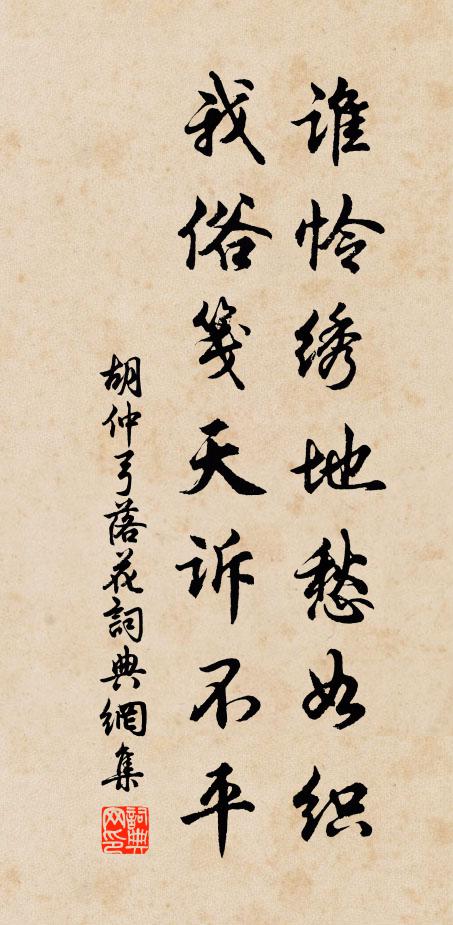 谁怜绣地愁如织
我俗笺天诉不平
胡仲弓落花詞典網集
詞典网印